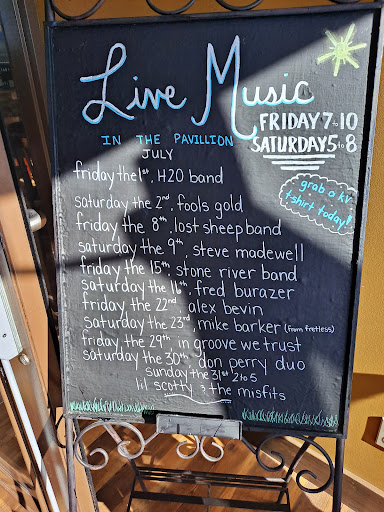 Live Music
IN THE PAVILLION
FRIDAY 7 to 10
JULY
SATURDAY 5 to 8
friday the 1st, H2O band
grab a kv
t-shirt today!
saturday the 2nd, fools gold
friday the 8th, lost sheep band
saturday the 9th, steve madewell
friday the 15th, stone river band
saturday the 16th, fred burazer
friday the 22nd, alex bevin
saturday the 23rd, mike barker (from fretless)
friday the 29th, in groove we trust
saturday the 30th, don perry duo
sunday the 31st 2 to 5
lil scotty & the misfits